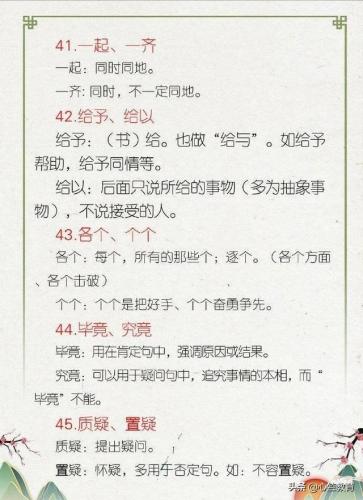 41.一起、一齐
一起：同时同地。
一齐: 同时，不一定同地。
42.给予、给以
给予：（书）给。也做“给与”。如给予
帮助，给予同情等。
给以：后面只说所给的事物（多为抽象事
物），不说接受的人。
43.各个、个个
各个：每个，所有的那些个；逐个。（各个方面
、各个击破）
个个：个个是把好手、个个奋勇争先。
44.毕竟、究竟
毕竟：用在肯定句中，强调原因或结果。
究竟：可以用于疑问句中，追究事情的本相，而“
毕竟”不能。
45.质疑、置疑
质疑：提出疑问。
置疑：怀疑，多用于否定句。如：不容置疑。
头条 @心笙教育